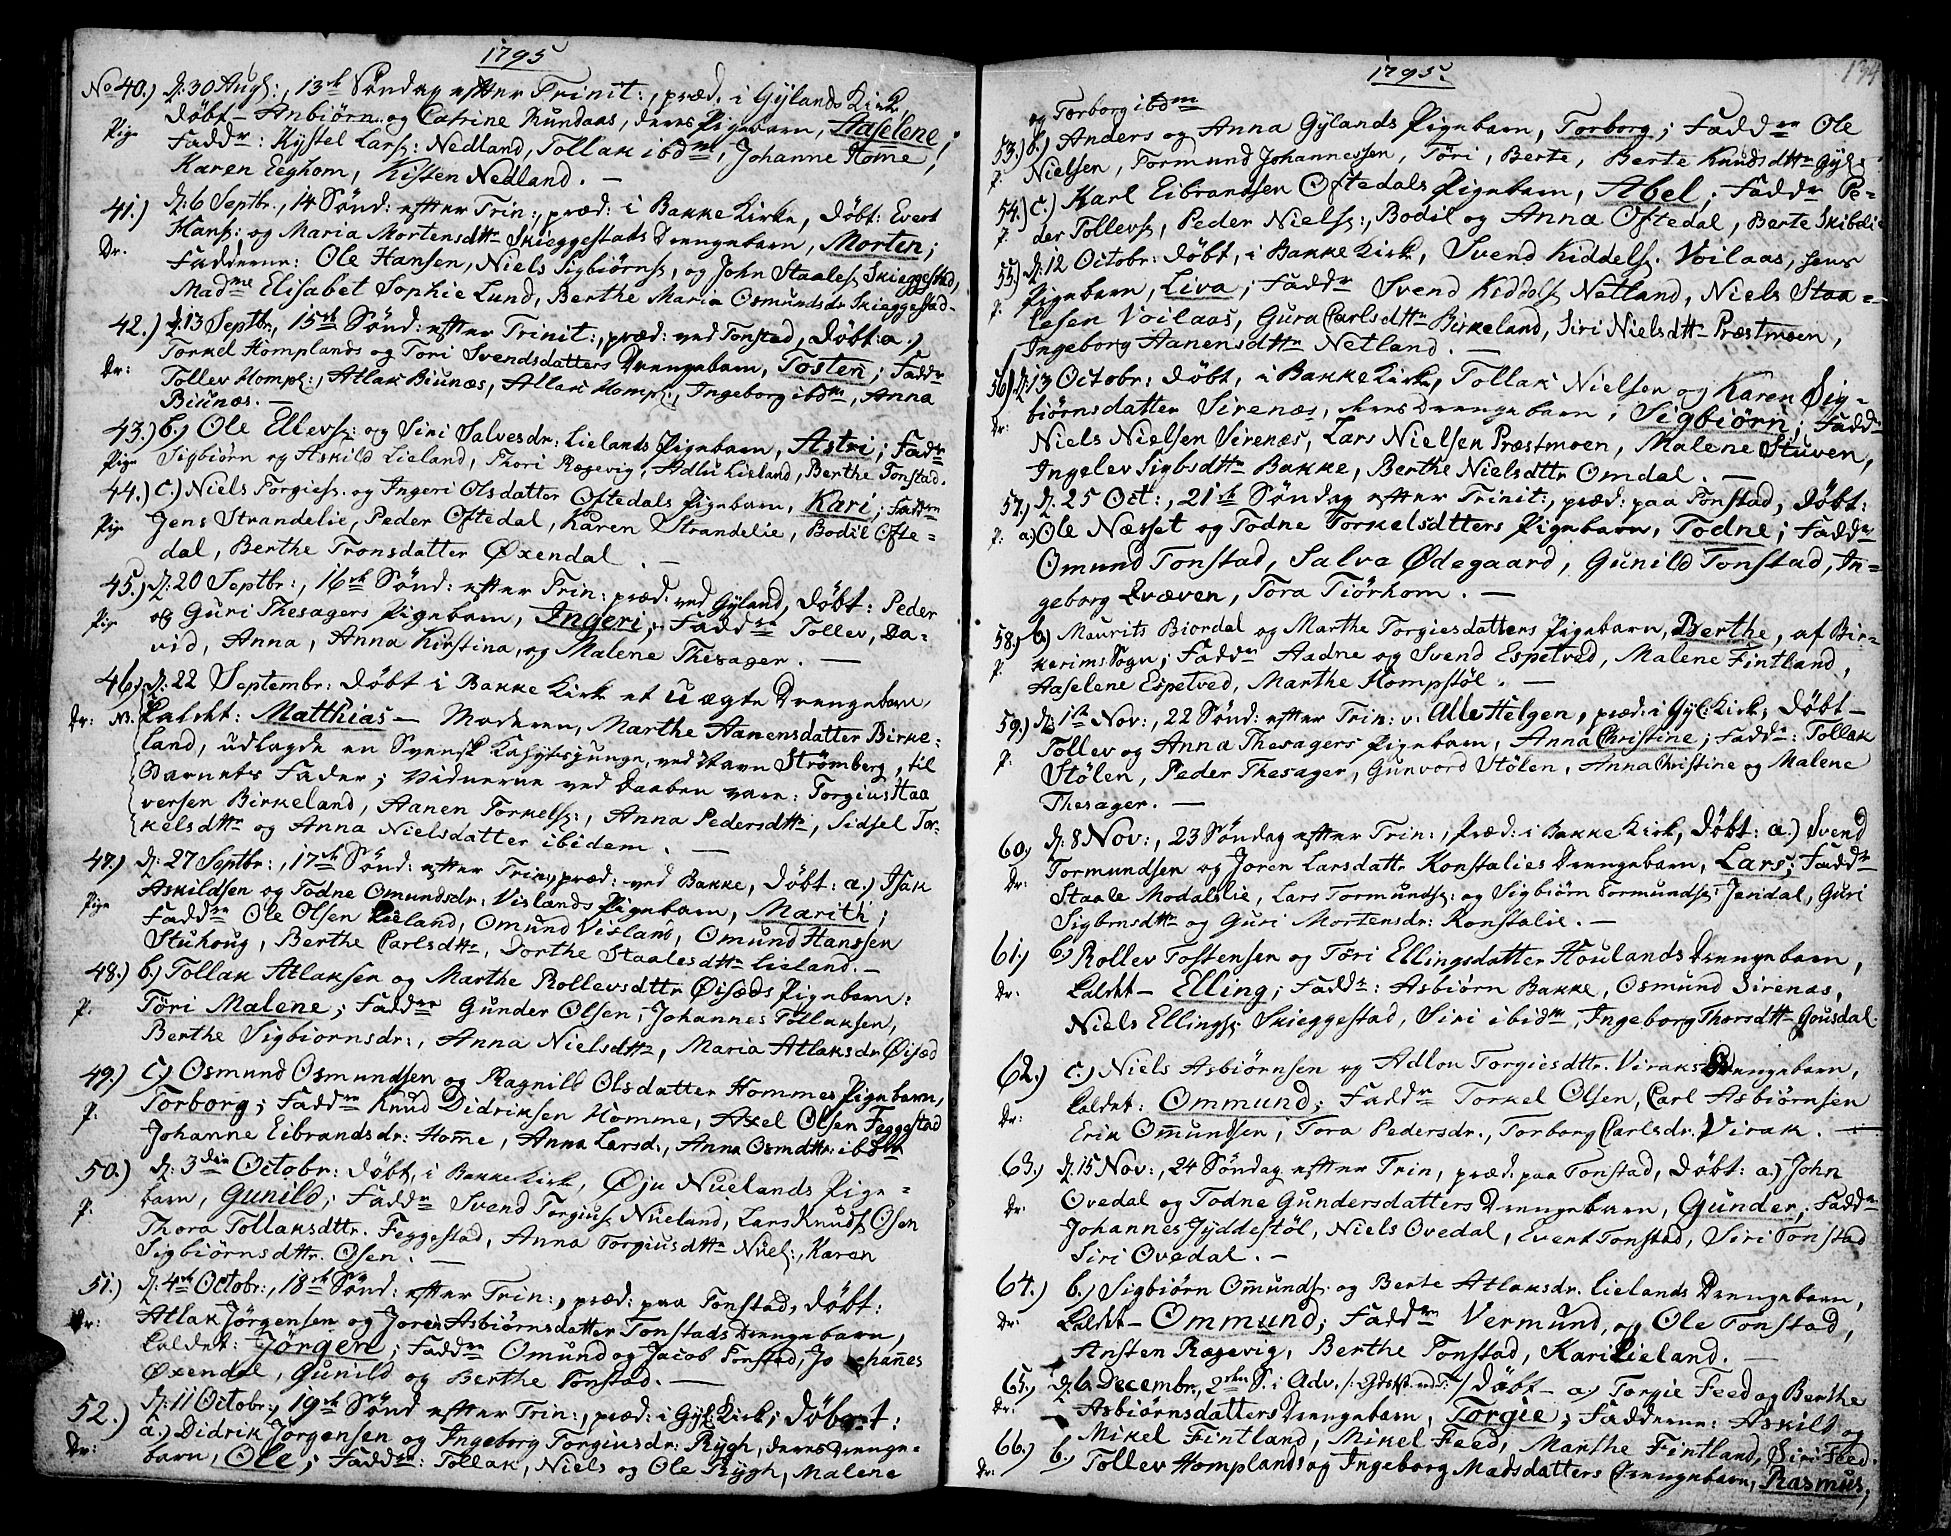 1795
No 40.) D: 30 Aug:, 13de Söndag efter Trinit:, præd. i Gylands Kirk,
Pige Döbt– Anbiörn og Catrine Rundaas, deres Pigebarn, Aaselene;
Faddr: Kystel Lars: Nedland, Tollak ibdm, Johanne Home,
Karen Eeghom, Kisten Nedland. —
41.) D: 6 Septbr., 14 Sönd: efter Trin:, præd: i Bakke Kirke, Döbt: Evert
Dr. Hans: og Maria Mortensdttr Skieggestads Drengebarn, Morten;
Fadderne: Ole Hansen, Niels Sigbiörns, og John Staales Skieggestad,
Madme Elisabet Sophie Lund, Berthe Maria Osmundsdr Skieggestad.
42.) D: 13 Septbr, 15de Sönd: efter Trinit:, præd: ved Tonstad, Döbt: a.)
Dr: Torkel Homplands og Tori Svendsdatters Drengebarn, Tosten; Faddr
Tollev Hompl:, Atlak Biunæs, Atlak Hompl:, Ingeborg ibdm, Anna
Biunæs. —
43.) b.) Ole Ellevs: og Siri Salvesdr: Lielands Pigebarn, Astri; Faddr
Pige Sigbiörn og Askild Lieland, Thori Rægevig, Adlu Lieland, Berthe Tonstad.
44.) C.) Niels Torgies. og Ingeri Olsdatter Oftedals Pigebarn, Kari; Faddrn
Pige Jens Strandelie, Peder Oftedal, Karen Strandelie, Bodil Ofte=
dal, Berthe Tronsdatter Øxendal. —
45.) D: 20 Septbr:, 16de Sönd: efter Trin: præd: ved Gyland, Döbt: Peder
Pige og Guri Thesagers Pigebarn, Ingeri; Faddrn Tollev, Da=
vid, Anna, Anna Kirstina, og Malene Thesager. —
46.) D: 22 Septembr: Döbt i Bakke Kirk et uægte Drengebarn,
Dr: N. Caldet: Matthias — Moderen, Marthe Aanensdatter Birke=
land, udlagde en Svensk Kahytsjunge, ved Navn Strömberg, til
Barnets Fader; Vidnerne ved Daaben vare: Torgius Haa
versen Birkeland, Aanen Torkels:, Anna Pedersdttr, Sidsel Tor=
kelsdttr og Anna Nielsdatter ibidem. —
47.) D: 27 Septbr:, 17de Sönd: efter Trin, præd: ved Bakke, Döbt: a.) Isak
Pige Askildsen og Todne Omundsdr: Vislands Pigebarn, Marith;
Faddrn Ole Olsen Lieland, Omund Visland, Omund Hanssen
Stuhoug, Berthe Carlsdttr, Dorthe Staalesdttr Lieland. —
48.) b.) Tollak Atlaksen og Marthe Rollevsdttr Øisæds Pigebarn:
P. Töri Malene; Faddrn Gunder Olsen, Johannes Tollaksen,
Berthe Sigbiornsdr:, Anna Nielsdttr, Maria Atlaksdr Øisæd
49.) C.) Osmund Osmundsen og Ragnild Olsdatter Hommes Pigebarn,
P. Torborg; Faddrn Knud Didriksen Homme, Axel Olsen Feggestad
Johanne Eibrandsdr: Home, Anna Larsd:, Anna Osmdttr: ibdm
50.) D: 3die Octobr: Döbt, i Bakke Kirk, Øju Nuelands Pige=
P. barn, Gunild; Faddrn Svend Torgius: Nueland, Lars Knuds Osen
Thora Tollaksdttr. Feggestad, Anna Torgiusdttr Nuel:, Karen
Sigbiörnsdttr. Osen. —
51.) D: 4de Octobr:, 18de Sönd: efter Trin:, præd: paa Tonstad, Döbt:
Dr: Atlak Jörgensen og Joren Asbiörnsdatter Tonstads Drengebarn,
Caldet: Jörgen; Faddrn Omund og Jacob Tonstad, Johannes
Øxendal, Gunild og Berthe Tonstad. —
52.) D: 11 Octobr:, 19de Sönd efter Trin:, præd: i Gyl: Kirk; Döbt:
Dr: a.) Didrik Jörgensen og Ingeborg Torgiusdr: Rygh, deres Drenge=
barn, Ole; Faddrn: Tollak, Niels og Ole Rygh, Malene
1795.
134
og Torborg ibdm
53.) b.) Anders og Anna Gylands Pigebarn, Torborg; Faddrn Ole
P. Nielsen, Tormund Johannessen, Töri, Berte, Berte Knudsdttr Gyl:
54.) C.) Karl Eibrandsen Oftedals Pigebarn, Abel; Faddr Pe=
P. der Tollevs, Peder Niels:, Bodil og Anna Oftedal, Berte Skibelie
55.) D: 12 Octobr: Döbt, i Bakke Kirk, Svend Kiddels. Voilaas, hans
P. Pigebarn, Liva; Faddrn Svend Kiddels Netland, Niels Staa=
lesen Voilaas, Gura Carlsdttr Birkeland, Siri Nielsdttr Præstmoen,
Ingeborg Aanensdttr Netland. —
56) D: 13 Octobr: Döbt, i Bakke Kirk, Tollak Nielsen og Karen Sig=
Dr: biörnsdatter Sirenæs, deres Drengebarn, Sigbiörn; Faddrn
Niels Nielsen Sirenæs, Lars Nielsen Præstmoen, Malene Stuven,
Ingelev Sigbsdttr Bakke, Berthe Nielsdttr Omdal. —
57.) D: 25 Oct:, 21de Söndag efter Trinit:, præd: paa Tonstad, Döbt:
P. a.) Ole Næsset og Todne Torkelsdtters Pigebarn, Todne; Faddrn
Omund Tonstad, Salve Ødegaard, Gunild Tonstad, In=
geborg Qvæven, Tora Tiörhom. —
58.) b.) Maurits Biordal og Marthe Torgiesdatters Pigebarn, Berthe, af Bir=
P. kerims Sogn; Faddrn Aadne og Svend Espetved, Malene Fintland,
Aaselene Espetved, Marthe Hompstöl. —
59.) D: 1ste Nov:, 22 Sönd: efter Trin: v: Alle Helgen, præd: i Gyl: Kirk; Döbt—
P. Tollev og Anna Thesagers Pigebarn, Anna Christine; Faddrn: Tollak
Stölen, Peder Thesager, Gunvord Stölen, Anna Christine og Malene
Thesager. —
60.) D: 8 Nov:, 23 Söndag efter Trin:, Præd: i Bakke Kirk, Döbt: a.) Svend
Dr: Tormundsen og Joren Larsdattr Konstalies Drengebarn, Lars; Faddrn
Staale Modalslie, Lars Tormunds: og Sigbiörn Tormunds: Jendal, Guri
Sigbrnsdttr og Guri Mortensdr: Konstalie. —
61.) b.) Rollev Tostensen og Töri Ellingsdatter Houlands Drengebarn,
Dr: Caldet— Elling; Faddrn: Asbiörn Bakke, Osmund Sirenæs,
Niels Ellings: Skieggestad, Siri ibidm, Ingeborg Thorsdttr Gousdal.
62.) C.) Niels Asbiörnsen og Adlou Torgiesdttr. Viraks Drengebarn,
Dr: Caldet: Ommund; Faddrn Torkel Olsen, Carl Asbiörnsen
Erik Omundsen, Tora Pedersdr., Torborg Carlsdr. Virak. —
63.) D: 15 Nov:, 24 Söndag efter Trin, præd: paa Tonstad, Döbt: a.) John
Dr: Ovedal og Todne Gundersdatters Drengebarn, Gunder; Faddrn
Johannes Jyddestöl, Niels Ovedal, Evert Tonstad, Siri Tonstad
Siri Ovedal. —
64.) b.) Sigbiörn Omunds: og Berte Atlaksdr. Lielands Drengebarn,
Dr: Caldet— Ommund; Faddrn Vermund, og Ole Tonstad,
Ansten Rægevig, Berthe Tonstad, Kari Lieland. —
65.) D: 6 Decembr, 2den S. i Adv. /: /Döbt— a.) Torgie Feed og Berthe
Dr: Asbiörnsdatters Drengebarn, Torgie; Fadderne: Askild og
Mikel Fintland, Mikel Feed, Marthe Fintland, Siri Feed.
66.) b.) Tollev Homplands og Ingeborg Madsdatters Drengebarn, Rasmus;
Dr: